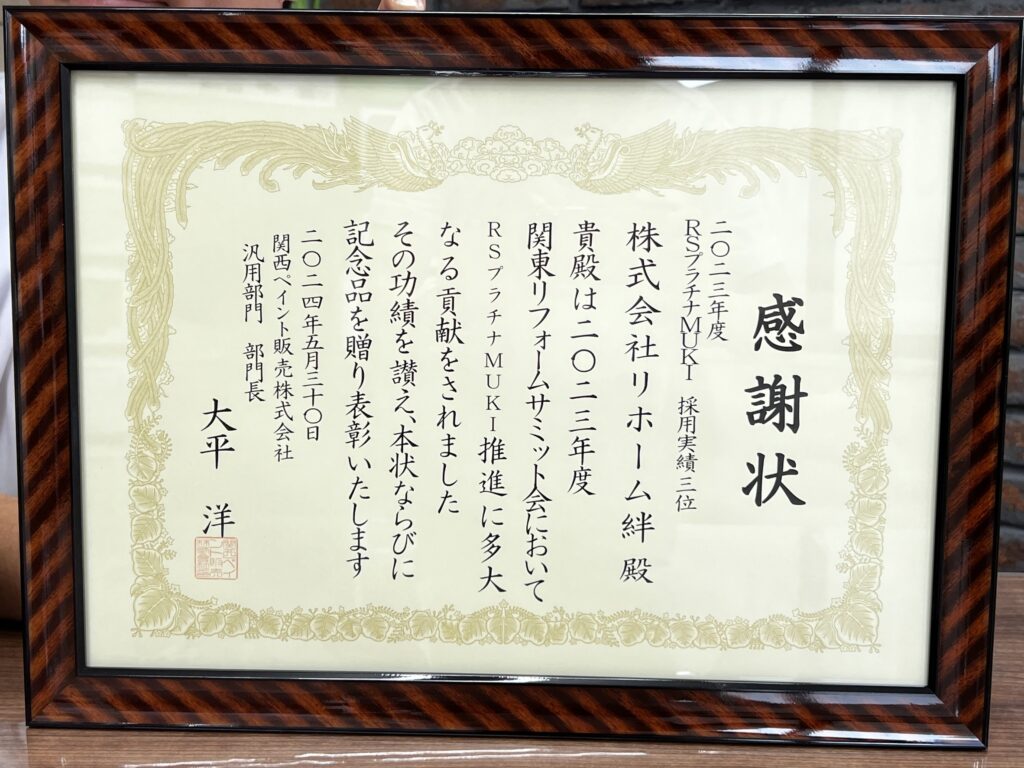 感謝状
二〇二三年度
RSプラチナMUKI 採用実績三位
株式会社リホーム絆 殿
貴殿は二〇二三年度
関東リフォームサミット会において
RSプラチナMUKI推進に多大
なる貢献をされました
その功績を讃え、本状ならびに
記念品を贈り表彰いたします
二〇二四年五月三十〇日
関西ペイント販売株式会社
汎用部門 部門長
大平 洋